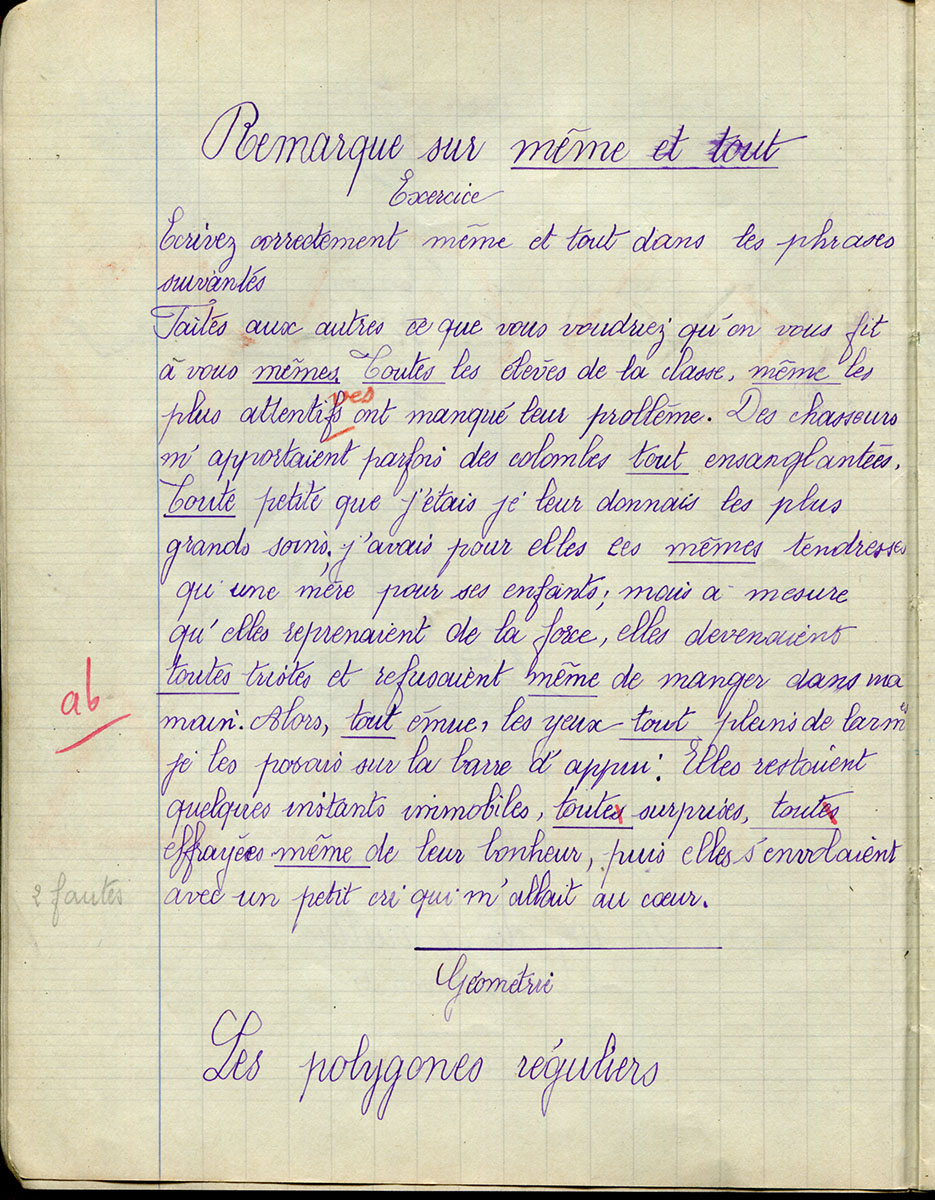 Remarque sur même et tout
Exercice
Ecrivez correctement même et tout dans les phrases
suivantes
Faites aux autres ce que vous voudriez qu'on vous fit
à vous mêmes. Toutes les élèves de la classe, même les
ves
plus attentifs ont manqué leur problème. Des chasseurs
m'apportaient parfois des colombes tout ensanglantées.
Toute petite que j'étais je leur donnais les plus
grands soins; j'avais pour elles les mêmes tendresses
qu'une mère pour ses enfants; mais à mesure
qu'elles reprenaient de la force, elles devenaient
toutes tristes et refusaient même de manger dans ma
ab
main. Alors, tout émue, les yeux tout pleins de larmes
je les posais sur la barre d'appui. Elles restaient
quelques instants immobiles, toutes surprises, toutes
effrayées même de leur bonheur, puis elles s'envolaient
2 fautes
avec un petit cri qui m'allait au cœur.
Géométrie
Les polygones réguliers